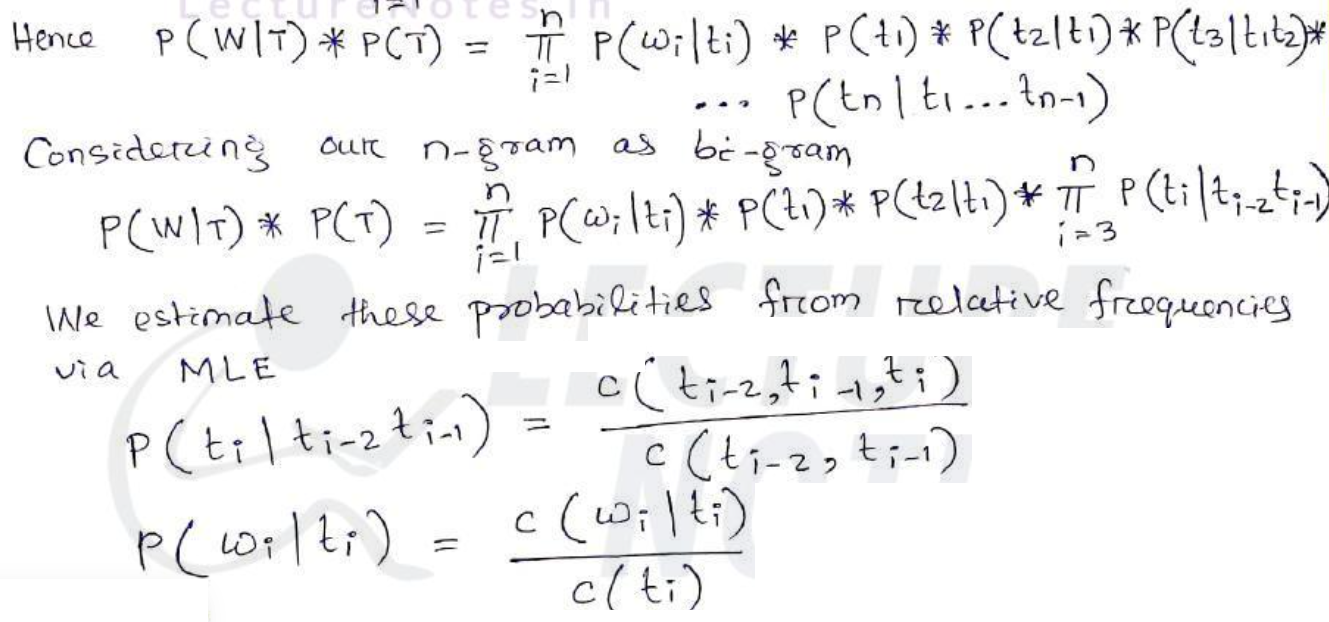 LectureNotes.in
i=1
Hence P(W|T) * P(T) = n π i=1 P(ωi|ti) * P(t1) * P(t2|t1) * P(t3|t1t2) *
... P(tn|t1...tn-1)
Considering our n-gram as bi-gram
P(W|T) * P(T) = n π i=1 P(ωi|ti) * P(t1) * P(t2|t1) * n π i=3 P(ti|ti-2ti-1)
We estimate these probabilities from relative frequencies
via MLE
P(ti|ti-2 ti-1) = c(ti-2,ti-1,ti) / c(ti-2,ti-1)
P(ωi|ti) = c(ωi|ti) / c(ti)
LECTURE